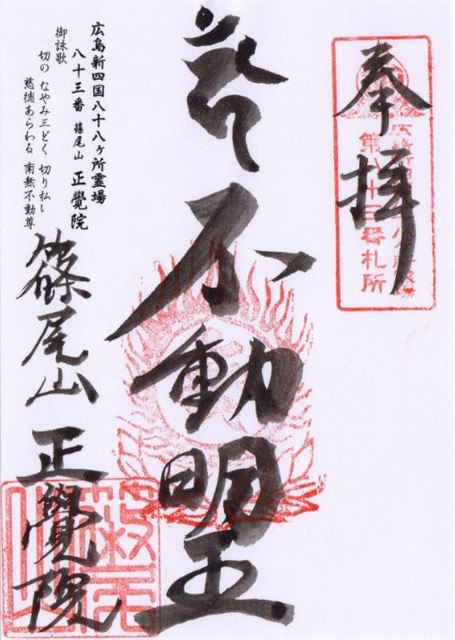 奉拝
第八十三番札所
不動明王
広島新四国八十八ヶ所霊場
八十三番 篠尾山 正覺院
御詠歌
切の なやみ三どく 切り払い
慈徳あらわる 南無不動尊
篠尾山 正覺院